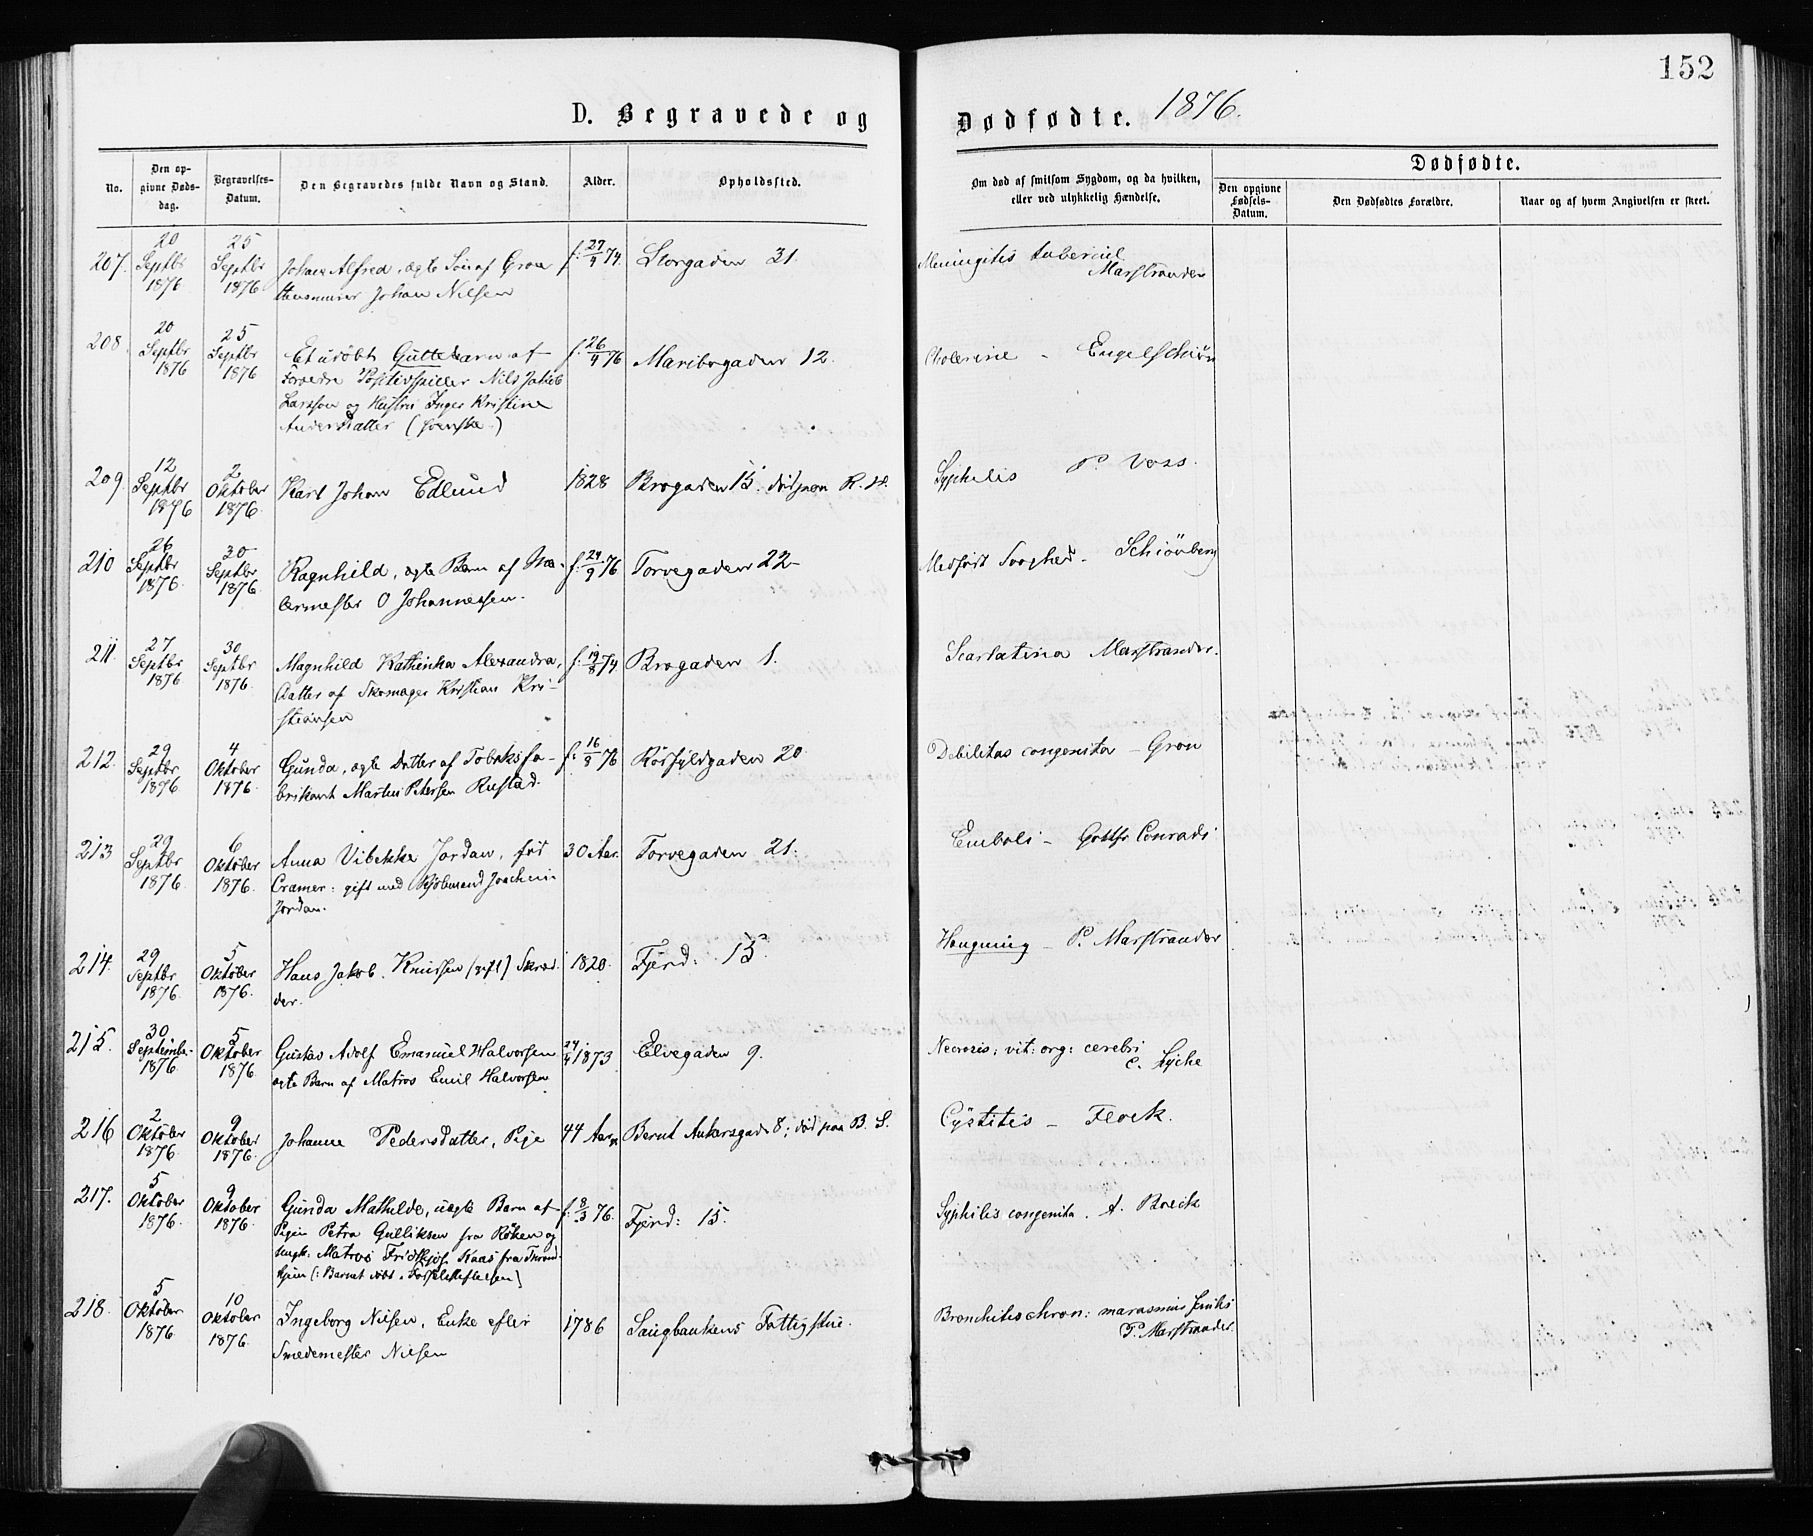 152
D. Begravede og Dødfødte. 1876.
No.
Den opgivne Døds-dag.
Begravelses-Datum.
Den Begravedes fulde Navn og Stand.
Alder.
Opholdssted.
Om død af smitsom Sygdom, og da hvilken, eller ved ulykkelig Hændelse.
Dødfødte.
Den opgivne Fødsels-Datum.
Den Dødfødtes Forældre.
Naar og af hvem Angivelsen er skeet.
207. 20 Septbr 1876 25 Septbr 1876 Johan Alfred, ægte Søn af Gron f: 27/9 74. Storgaden 31. Meningitis tubercul
Johan Nilsen Marstrander
208. 20 Septbr 1876 25 Septbr 1876 Et udøbt Guttebarn af f: 26/4 76 Maribogaden 12. Cholerine – Engelschiøn
Forældre Positivspiller Nils Jakob
Larsson og Hustru Inger Kristine
Andersdatter (svenske.)
209. 12 Septbr 1876 2 Oktober 1876. Karl Johan Edlund 1828 Brogaden 15. død paa R. H. Syphilis P. Voss.
210 26 Septbr 1876. 30 Septbr 1876 Ragnhild, ægte Barn af Ma- f: 24/9 76 Torvegaden 22– Medfødt Svaghed – Schiønberg
lermester O Johannessen.
211. 27 Septbr 1876 30 Septbr 1876. Magnhild Kathinka Alexandra, f: 19/8 74 Brogaden 1. Scarlatina Marstrander.
Datter af Skomager Kristian Kri-
stiansen
212. 29 Septbr 1876 4 Oktober 1876. Gunda, ægte Datter af Tobaksfa- f: 16/8 76 Rørfyldgaden 20 Debilitas congenita – Gron
brikant Martin Petersen Rustad.
213 29 Septbr 1876. 6 Oktober 1876. Anna Vibekke Jordan, født 30 Aar. Torvegaden 21. Emboli – Gottfr Conradi
Cramer: gift med Kjøbmand Joachim
Jordan.
214. 29 Septbr 1876. 5 Oktober 1876. Hans Jakob Knudsen (gift) Skræd- 1820. Fjerd: 15. Hængning – P. Marstrander
der.
215. 30 September 1876 5 Oktober 1876. Gustav Adolf Emanuel Halvorsen 24/4 1873 Elvegaden 9. Necrosis: vit: org: cerebri
ægte Barn af Matros Emil Halvorsen C. Lyche
216 2 Oktober 1876. 9 Oktober 1876. Johanne Pedersdatter, Pige 44 Aar Bernt Ankersgade 8; død paa B. S. Cystitis – Flock.
217. 5 Oktober 1876. 9 Oktober 1876. Gunda Mathilde, uægte Barn af f: 8/3 76. Fjerd: 15. Syphilis congenita. A. Boeck
Pigen Petra Gulliksen fra Røken og
Ungk: Matros Fridthjof Kaas fra Thrond-
hjem (: Barnet døbt i Fødselsstiftelsen)
218. 5 Oktober 1876 10 Oktober 1876. Ingeborg Nilsen, Enke efter 1786 Saugbankens Fattigstue. Bronchitis chron: marasmus senilis
Smedemester Nielsen P. Marstrander.